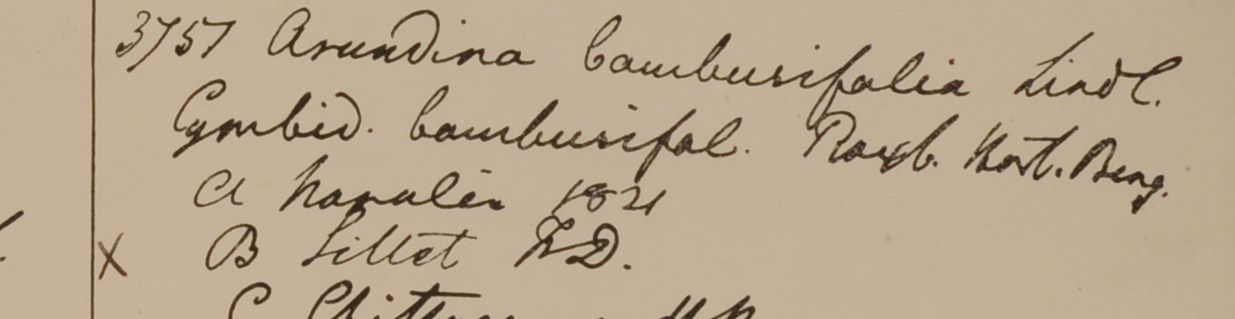 3751 Arundina bambusifolia Lindl.
Cymbid. bambusifol. Roxb. Hort. Beng.
a Napalia 1821
X B Sillet F.D.
C